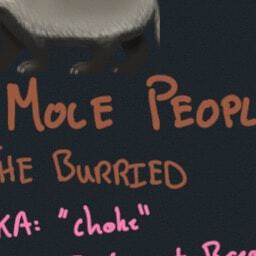 MOLE PEOPL
HE BURRIED
KA: "choke"